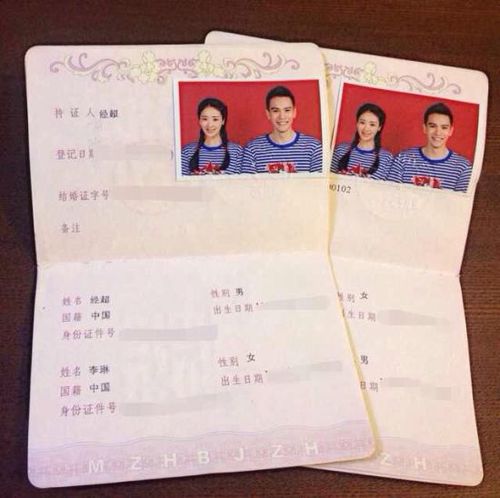 持证人 经超
登记日期
结婚证字号
备注
姓名 经超 性别 男
国籍 中国 出生日期
身份证件号
姓名 李琳 性别 女
国籍 中国 出生日期
身份证件号
MZHBJZH
00102
别 女
生日期
别 男
生日期
Z H